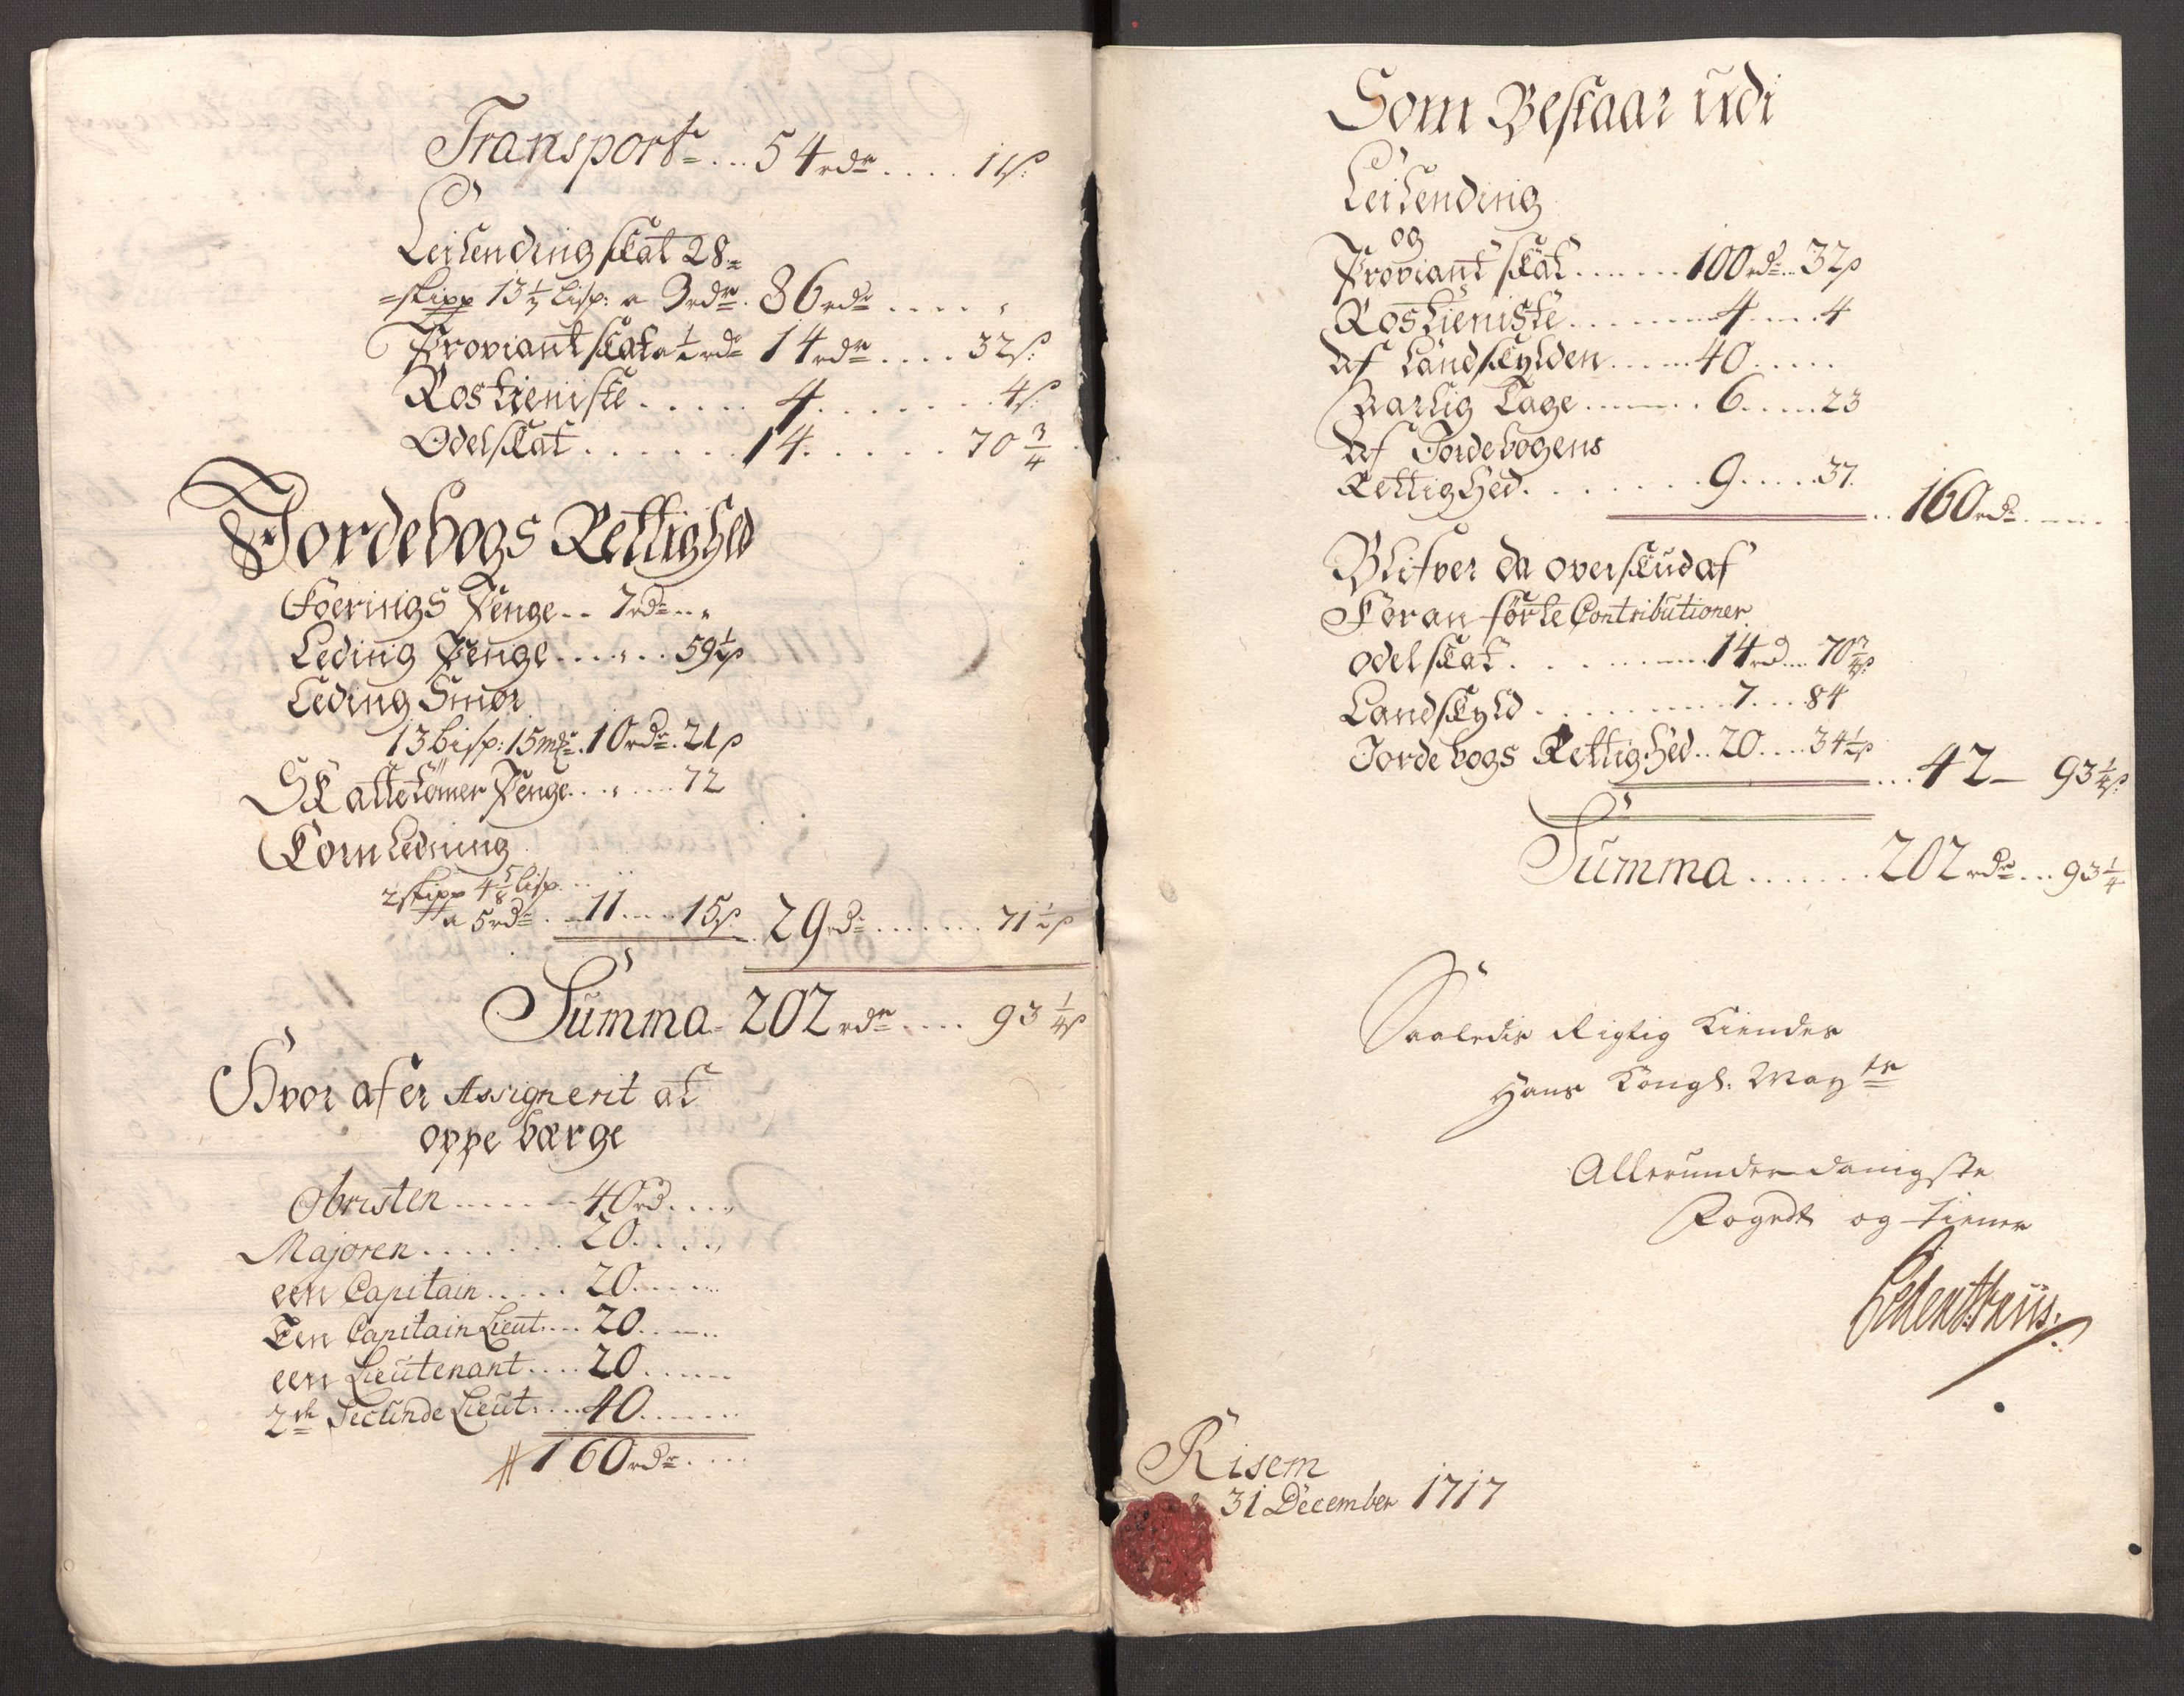 Transport... 54 rdr .... 1 ß:
Leilending skat 28
skipp 13 1/3 lisp: a 3 rdr. 86 rdr .... „
Proviant skat a 1/2 rdr 14 rdr .... 32 ß:
Rostieniste ..... 4 ....... 4 ß:
Odelskat ...... 14 ...... 70 3/4
Jordebogs Rettighed
Foerings Penge .. 7 rdr .. „
Leding Penge .... „ .. 59 1/2 ß
Leding Smør
13 bisp: 15 mkr. 10 rdr. 21 ß
Skattetømer Penge .. „ .... 72
Korn Ledning
2 skipp 4 5/8 lisp ...
a 5 rdr ... 11 .... 15 ß. 29 rdr ....... 71 1/2 ß
Summa - 202 rdr .... 93 1/4 ß
Hvor af er Assignerit at
oppebærge
Obristen ...... 40 rd ....
Majoren ....... 20 ....
een Capitain ..... 20 .....
Een Capitain Lieut: ... 20 .....
een Lieutenant .... 20 .....
2de Secunde Lieut: ... 40 .......
160 rdr ....
Som Bestaar udi
Leilending
og
Proviant skat ....... 100 rdr .. 32 ß
Rostieniste ........ 4 .... 4
Af Landskylden ..... 40 .....
Aarlig Tage ...... 6 .... 23
Af Jordebogens
Rettighed ....... 9 .... 37. .. 160 rdr ....
Blifver da overskud af
Foran førte Contributioner
Odelskat ....... 14 rd ... 70 3/4 ß
Landskyld ........ 7 ... 84
Jordebogs Rettighed .. 20 .... 34 1/2 ß ... 42 — 93 1/4 ß:
Summa ....... 202 rdr ... 93 1/4
Saaledis Rigtig Kiendes
Hans Kongl: Maytz
Allerunderdanigste
Fogedt og tiener
Risem
d 31 December 1717